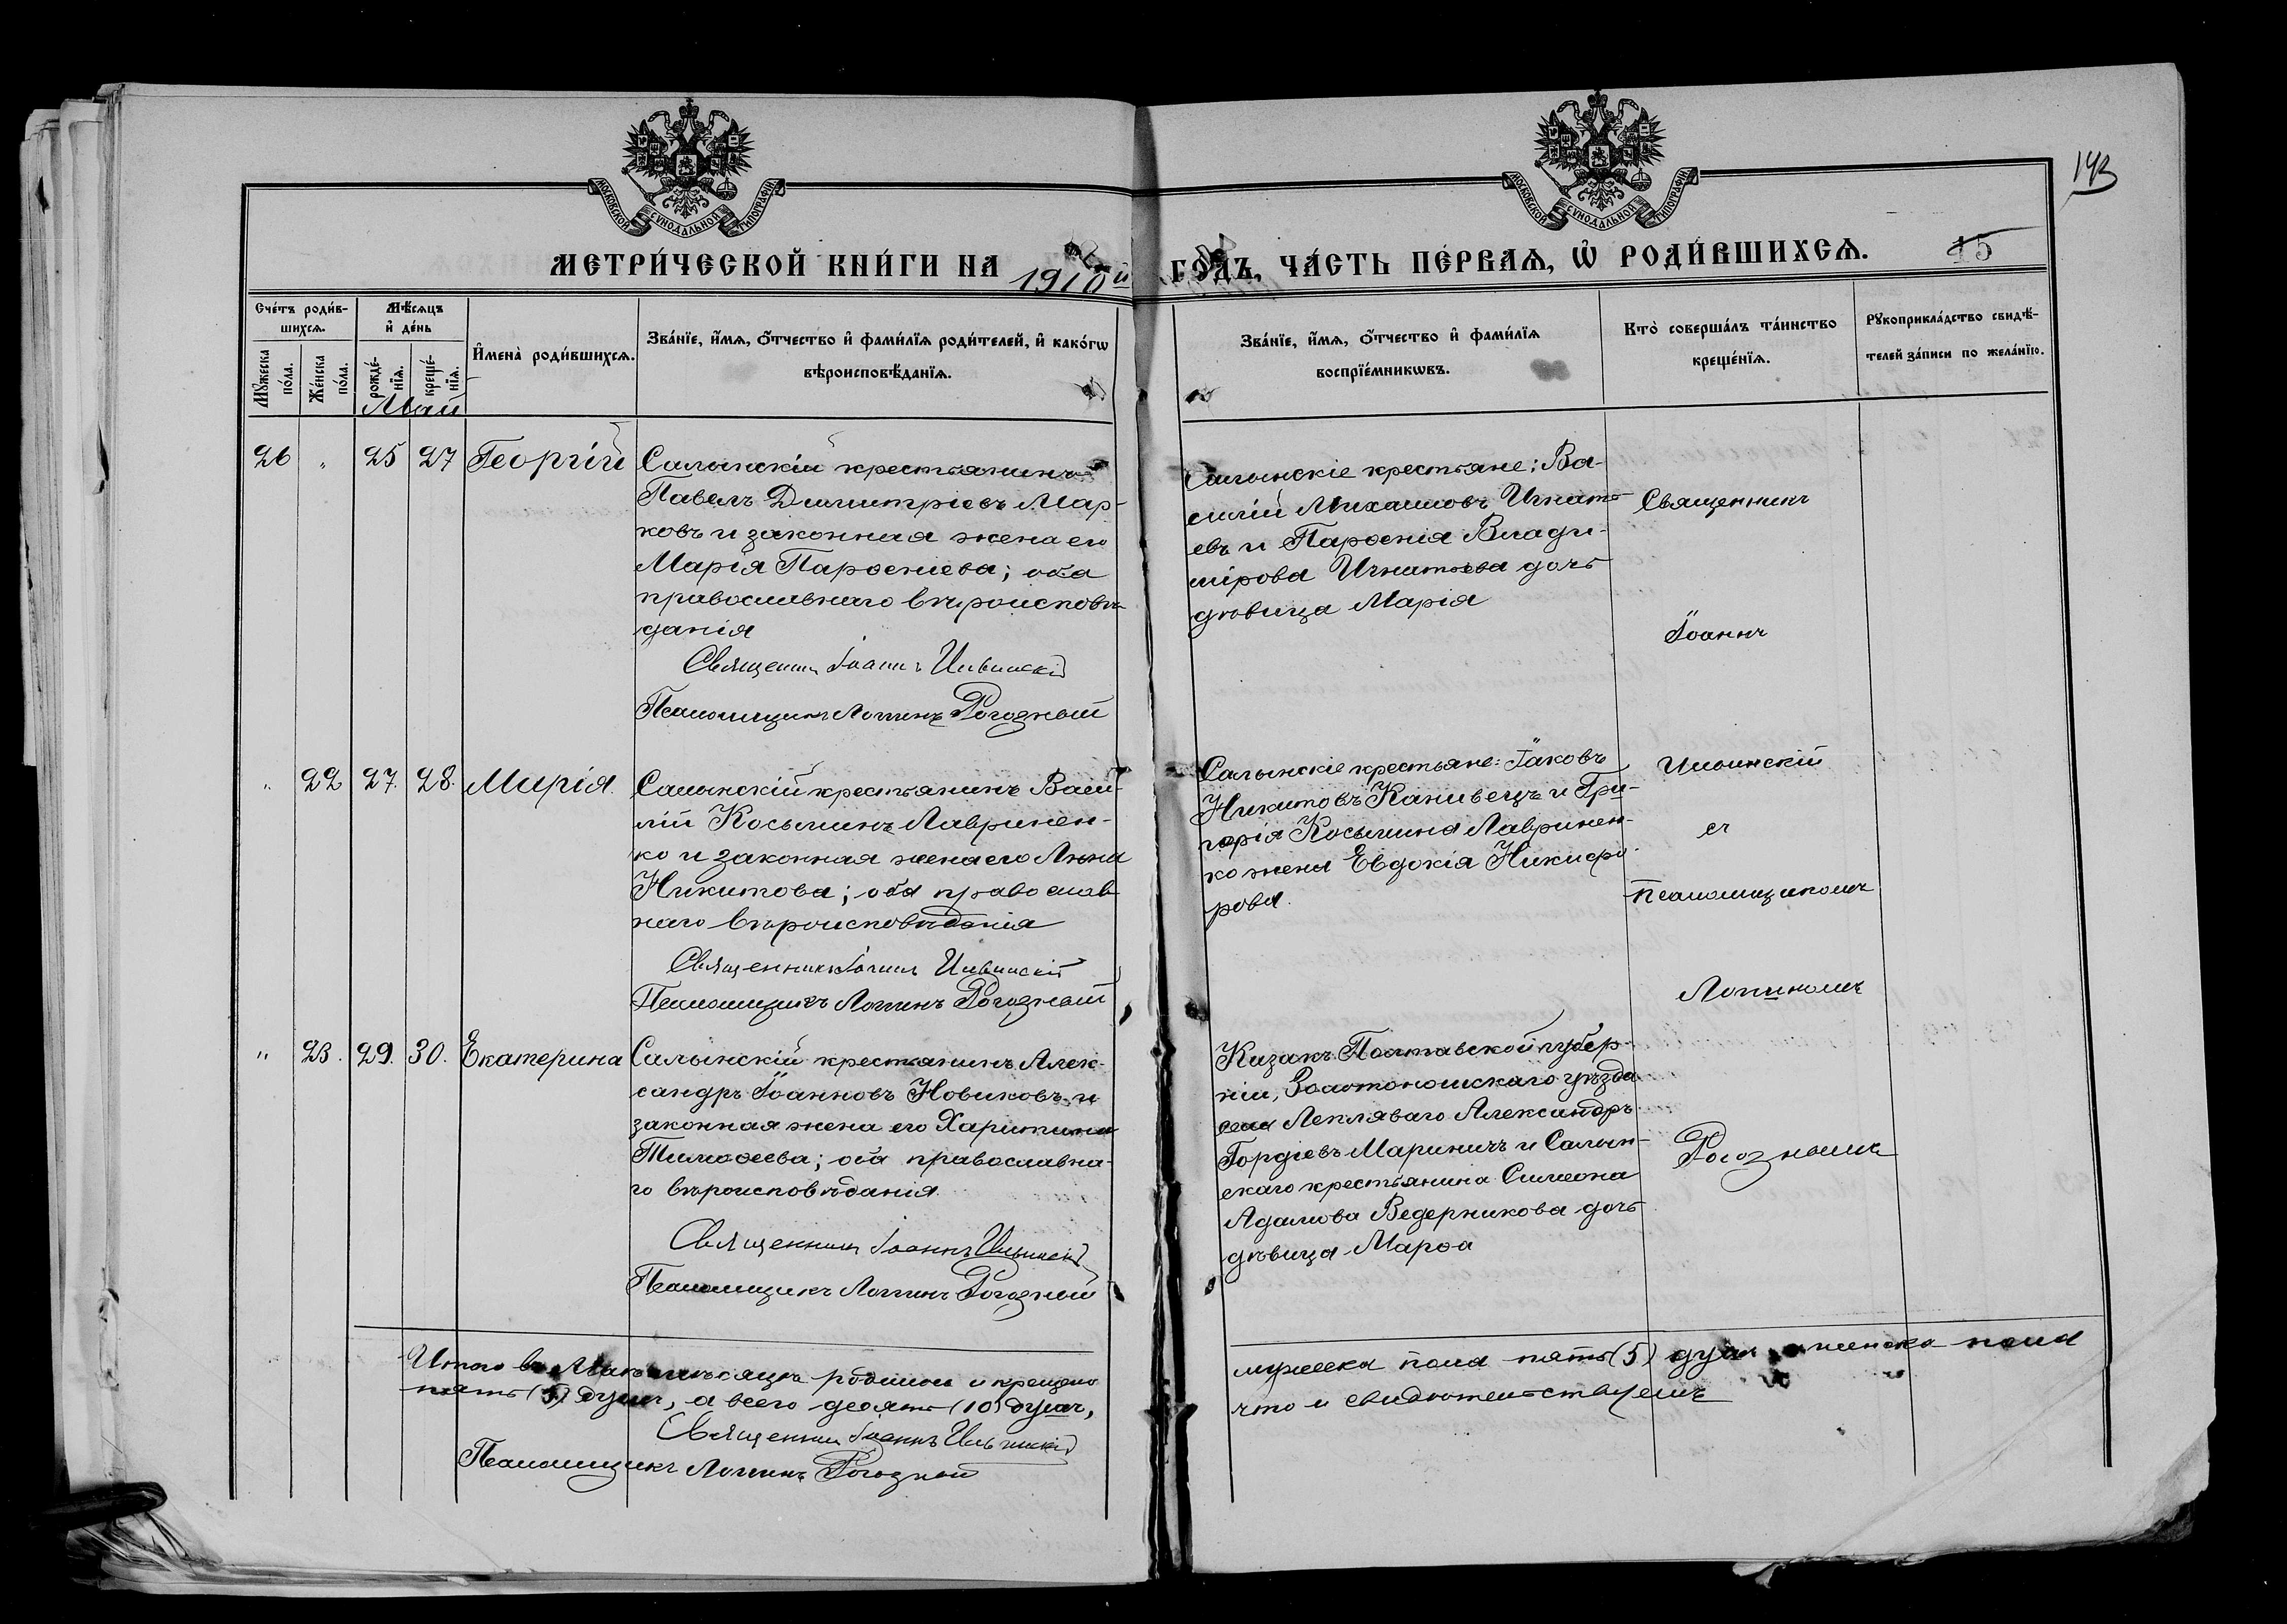 143
МОСКОВСКОЙ СѴНОДАЛЬНОЙ ТИПОГРАФІИ
МОСКОВСКОЙ СѴНОДАЛЬНОЙ ТИПОГРАФІИ
МЕТРИ́ЧЕСКОЙ КНИ́ГИ НА 1910й ГО́ДЪ, ЧА́СТЬ ПЕ́РВАѦ, Ѡ РОДИ́ВШИХСѦ.
15
Сче́тъ роди́в-
шихсѧ.
Мꙋ́жеска
по́ла.
Же́нска
по́ла.
Мѣ́сѧцъ
и҆ де́нь
рожде́-
нїѧ.
креще́-
нїѧ.
И҆мена̀ роди́вшихсѧ.
Зва́нїе, и҆́мѧ, ѻ҆́тчество и҆ фами́лїѧ роди́телей, и҆ како́гѡ
вѣроисповѣ́данїѧ.
Зва́нїе, и҆́мѧ, ѻ҆́тчество и҆ фами́лїѧ
воспрїе́мникѡвъ.
Кто̀ соверша́лъ та́инство
креще́нїѧ.
Рꙋкоприкла́дство свидѣ́-
телей за́писи по жела́нїю.
Май
26 " 25 27 Георгій
Салынскій крестьянинъ
Павелъ Димитріевъ Мар-
ковъ и законная жена его
Марія Парѳеніева; оба
православнаго вѣроисповѣ-
данія
Священник Іоаннъ Ильинскій
Псаломщикъ Логинъ Рогозный
Салынскіе крестьяне: Ва-
силій Михаиловъ Игнать-
евъ и Парѳенія Влади-
мірова Игнатьева дочь
дѣвица Марія
Священникъ
Іоаннъ
Ильинскій
съ
псаломщикомъ
Логиномъ
Рогознымъ
" 22 27. 28. Марія
Салынскій крестьянинъ Васи-
лій Косьминъ Лавринен-
ко и законная жена его Анна
Никитова; оба православ-
наго вѣроисповѣданія
Священникъ Іоаннъ Ильинскій
Псаломщикъ Логинъ Рогозный
Салынскіе крестьяне: Іаковъ
Никитовъ Канивецъ и Гри-
горія Косьмина Лавринен-
ко жена Евдокія Никифо-
рова.
" 23. 29. 30. Екатерина
Салынскій крестьянинъ Алек-
сандръ Іоанновъ Новиковъ и
законная жена его Харитина
Тимоѳеева; оба православна-
го вѣроисповѣданія.
Священник Іоаннъ Ильинскій
Псаломщикъ Логинъ Рогозный
Казакъ Полтавской губер-
ніи, Золотоношскаго уѣзда
села Лепляваго Александръ
Гордіевъ Мариничъ и Салын-
скаго крестьянина Симеона
Адамова Ведерникова дочь
дѣвица Марѳа
Итого въ Маѣ мѣсяцѣ родилось и крещено
мужеска пола пять (5) душ женска пола
пять (5) душъ, а всего десять (10) душъ,
что и свидѣтельствуемъ
Священник Іоаннъ Ильинскій
Псаломщикъ Логинъ Рогозный